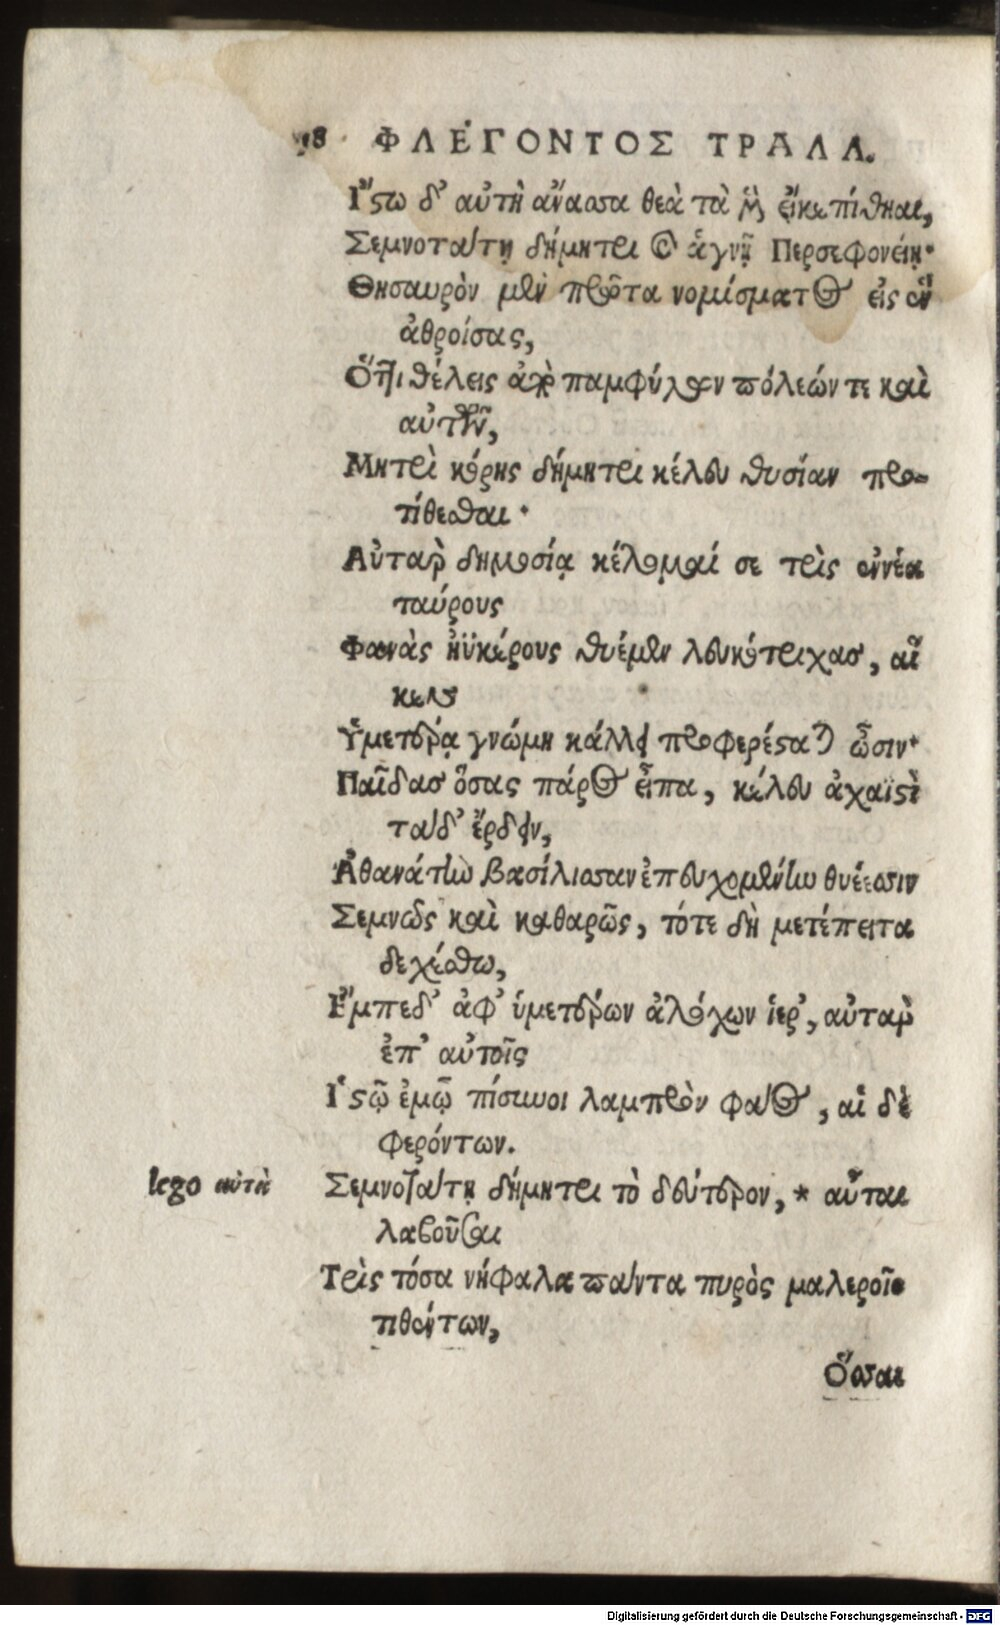 18 ΦΛΕΓΟΝΤΟΣ ΤΡΑΛΛ.
Ἴστω δ' αὐτὴ ἄνασσα θεὰ τὰ εἴκεπίθηαι,
Σεμνοτάτῃ δήμητρι καὶ ἁγνῇ Περσεφονείῃ·
Θησαυρὸν μὲν πρῶτα νομίσματος εἰς ἓν
ἀθροίσας,
Ὅττι θέλεις ἀπὸ παμφύλων πόλεών τε καὶ
αὐτῶν,
Μητρὶ κόρης δήμητρι κέλευ θυσίαν προ-
τίθεσθαι·
Αὐτὰρ δημοσίᾳ κέλομαί σε τρὶς ἐννέα
ταύρους
Φανὰς ἠϋκέρους θυέμεν λευκότριχας, αἵ
κεν
Ὑμετέρᾳ γνώμῃ κάλλει προφερέσταται ὦσιν·
Παῖδας ὅσας πάρος εἶπα, κέλευ ἀχαϊστὶ
τάδ' ἔρδειν,
Ἀθανάτην βασίλισσαν ἐπευχομένην θυέεσσιν
Σεμνῶς καὶ καθαρῶς, τότε δὴ μετέπειτα
δεχέσθω,
Ἔμπεδ' ἀφ' ὑμετέρων ἀλόχων ἱερ', αὐτὰρ
ἐπ' αὐτοῖς
Ἱστῷ ἐμῷ πίσυνοι λαμπρὸν φάος, αἱ δὲ
φερόντων.
lego αὐτὰ
Σεμνοτάτῃ δήμητρι τὸ δεύτερον, * αὗται
λαβοῦσαι
Τρὶς τόσα νήφαλα πάντα πυρὸς μαλεροῖο
τιθέντων,
Ὅσσαι
Digitalisierung gefördert durch die Deutsche Forschungsgemeinschaft - DFG